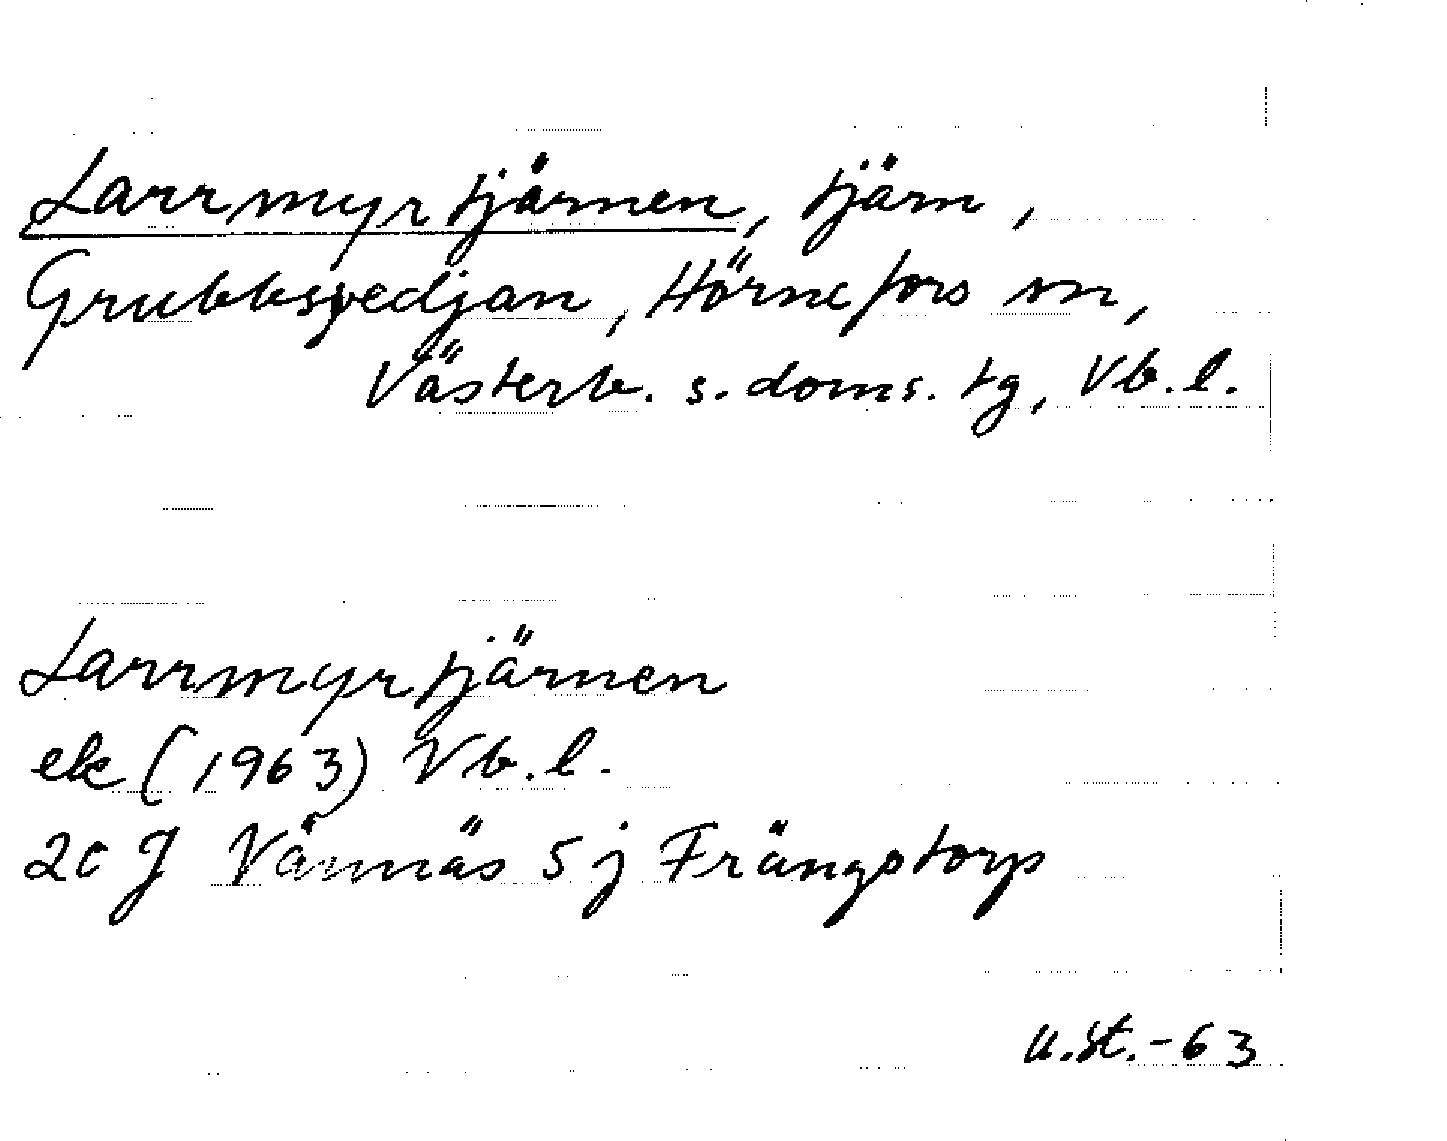 Larrmyrtjärnen, tjärn,
Grubbsvedjan, Hörnefors sn,
Västerb. s. doms. tg, Vb. l.
Larrmyrtjärnen
ek (1963) Vb. l.
20 J Vännäs 5 j Frängstorp
U.St.-63